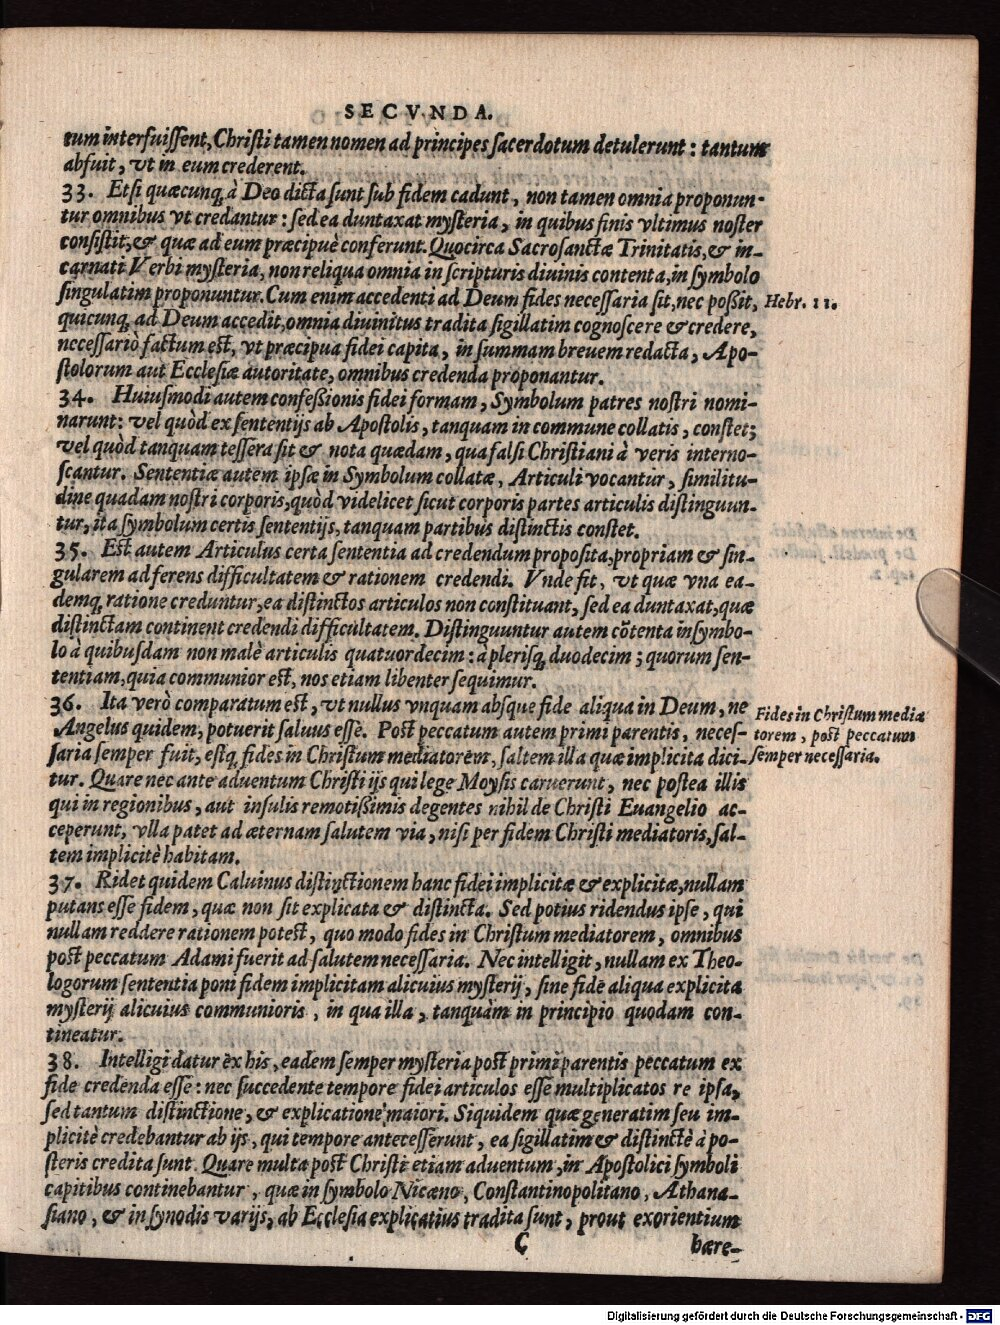 SECVNDA.
tum interfuiſſent, Chriſti tamen nomen ad principes ſacerdotum detulerunt: tantum
abfuit, vt in eum crederent.
33. Etſi quæcunq; à Deo dicta ſunt ſub fidem cadunt, non tamen omnia proponun-
tur omnibus vt credantur: ſed ea duntaxat myſteria, in quibus finis vltimus noſter
conſiſtit, & quæ ad eum præcipuè conferunt. Quocirca Sacroſanctæ Trinitatis, & in-
carnati Verbi myſteria, non reliqua omnia in ſcripturis diuinis contenta, in ſymbolo
ſingulatim proponuntur. Cum enim accedenti ad Deum fides neceſſaria ſit, nec poßit, Hebr. 11.
quicunq; ad Deum accedit, omnia diuinitus tradita ſigillatim cognoſcere & credere,
neceſſariò factum eſt, vt præcipua fidei capita, in ſummam breuem redacta, Apo-
ſtolorum aut Eccleſiæ autoritate, omnibus credenda proponantur.
34. Huiuſmodi autem confeßionis fidei formam, Symbolum patres noſtri nomi-
narunt: vel quòd ex ſententijs ab Apoſtolis, tanquam in commune collatis, conſtet;
vel quòd tanquam teſſera ſit & nota quædam, qua falſi Chriſtiani à veris interno-
ſcantur. Sententiæ autem ipſæ in Symbolum collatæ, Articuli vocantur, ſimilitu-
dine quadam noſtri corporis, quòd videlicet ſicut corporis partes articulis diſtinguun-
tur, ita ſymbolum certis ſententijs, tanquam partibus diſtinctis conſtet.
35. Eſt autem Articulus certa ſententia ad credendum propoſita, propriam & ſin-
gularem adferens difficultatem & rationem credendi. Vnde fit, vt quæ vna ea-
demq; ratione creduntur, ea diſtinctos articulos non conſtituant, ſed ea duntaxat, quæ
diſtinctam continent credendi difficultatem. Diſtinguuntur autem cōtenta in ſymbo-
lo à quibuſdam non malè articulis quatuordecim: à pleriſq; duodecim; quorum ſen-
tentiam, quia communior eſt, nos etiam libenter ſequimur.
36. Ita verò comparatum eſt, vt nullus vnquam abſque fide aliqua in Deum, ne
Angelus quidem, potuerit ſaluus eſſe. Poſt peccatum autem primi parentis, neceſ-
ſaria ſemper fuit, eſtq; fides in Chriſtum mediatorem, ſaltem illa quæ implicita dici-
tur. Quare nec ante aduentum Chriſti ijs qui lege Moyſis caruerunt, nec poſtea illis
qui in regionibus, aut inſulis remotißimis degentes nihil de Chriſti Euangelio ac-
ceperunt, vlla patet ad æternam ſalutem via, niſi per fidem Chriſti mediatoris, ſal-
tem implicitè habitam.
Fides in Chriſtum media
torem, poſt peccatum
ſemper neceſſaria.
37. Ridet quidem Caluinus diſtinctionem hanc fidei implicitæ & explicitæ, nullam
putans eſſe fidem, quæ non ſit explicata & diſtincta. Sed potius ridendus ipſe, qui
nullam reddere rationem poteſt, quo modo fides in Chriſtum mediatorem, omnibus
poſt peccatum Adami fuerit ad ſalutem neceſſaria. Nec intelligit, nullam ex Theo-
logorum ſententia poni fidem implicitam alicuius myſterij, ſine fide aliqua explicita
myſterij alicuius communioris, in qua illa, tanquàm in principio quodam con-
tineatur.
38. Intelligi datur ex his, eadem ſemper myſteria poſt primi parentis peccatum ex
fide credenda eſſe: nec ſuccedente tempore fidei articulos eſſe multiplicatos re ipſa,
ſed tantum diſtinctione, & explicatione maiori. Siquidem quæ generatim ſeu im-
plicitè credebantur ab ijs, qui tempore anteceſſerunt, ea ſigillatim & diſtinctè à po-
ſteris credita ſunt. Quare multa poſt Chriſti etiam aduentum, in Apoſtolici ſymboli
capitibus continebantur, quæ in ſymbolo Nicæno, Conſtantinopolitano, Athana-
ſiano, & in ſynodis varijs, ab Eccleſia explicatius tradita ſunt, prout exorientium
C hære-
Digitalisierung gefördert durch die Deutsche Forschungsgemeinschaft - DFG